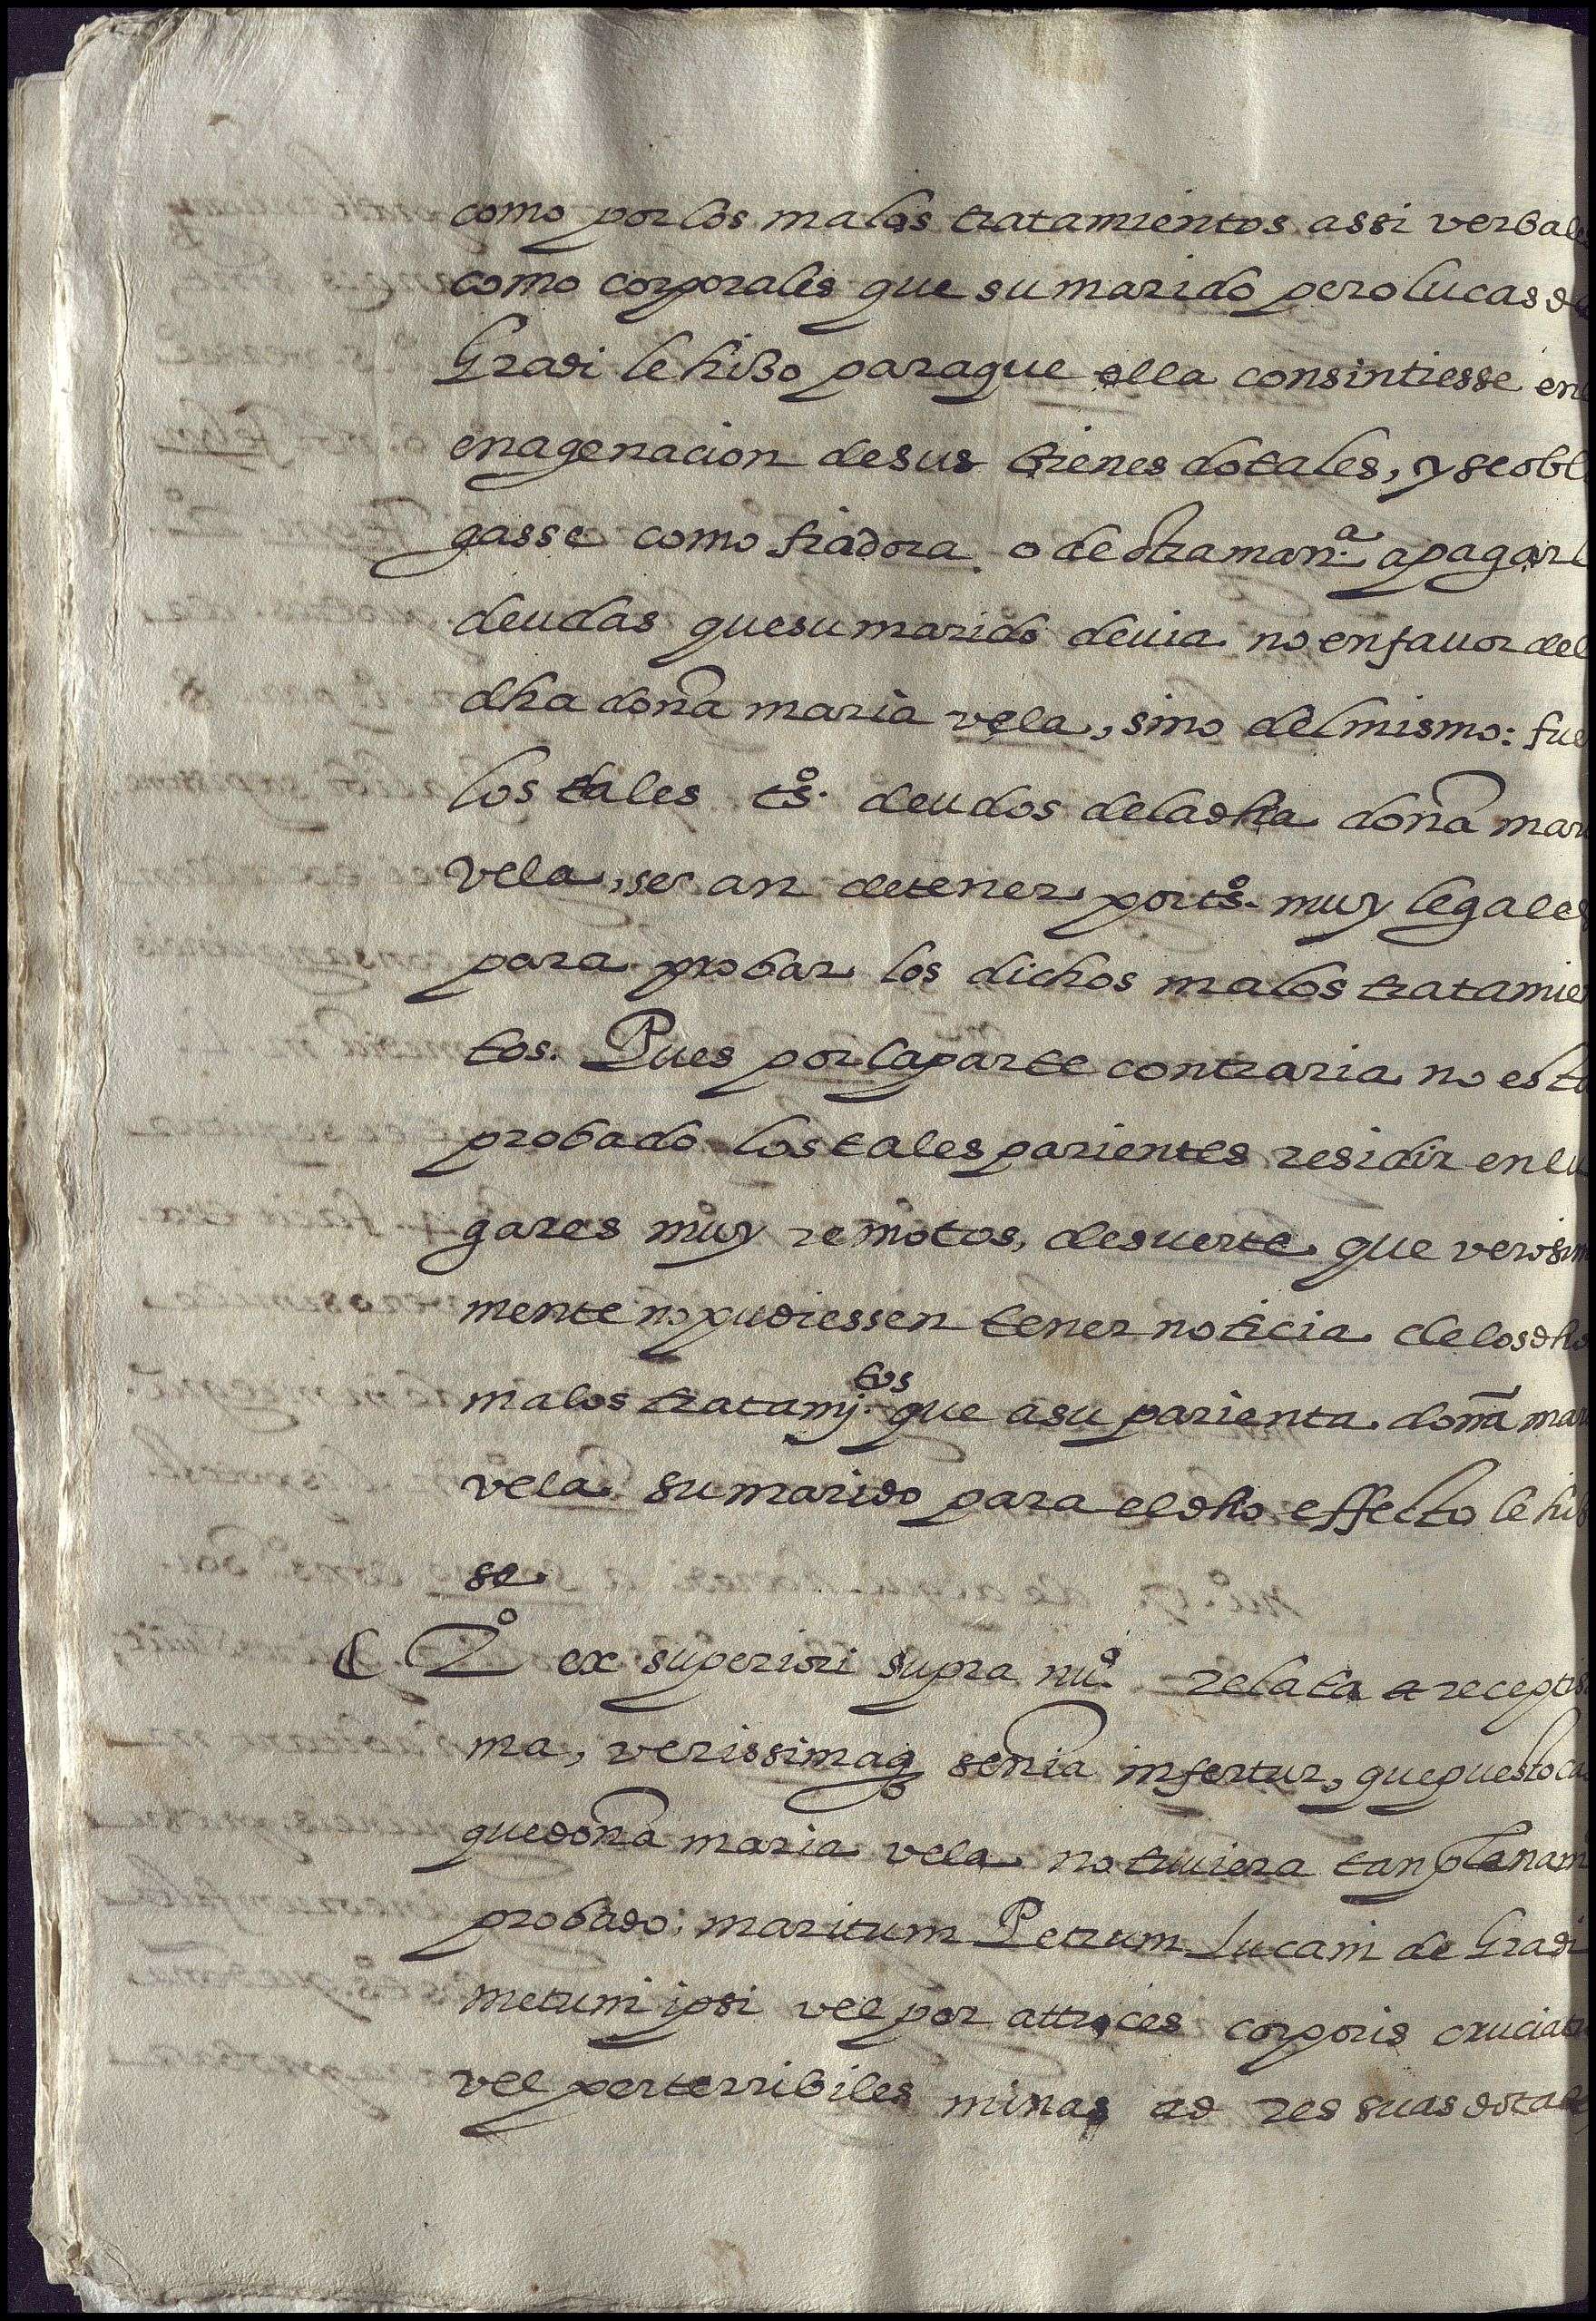 como por los malos tratamientos assi verbale
como corporales que su marido pero lucas de
Gradi le hiʒo paraque ella consintiesse en
enagenacion de sus bienes dotales, y se obl
gasse como fiadora. o de otra man.ª a pagar l
deudas que su marido deuia no en fauor del
dha doña maria vela, sino del mismo: fue
los tales tsº. deudos de la dha doña mar
vela, se an de tener por tsº. muy legales
para probar los dichos malos tratamie
tos. Pues por la parte contraria no esta
probado los tales parientes residir en lu
gares muy remotos, de suerte que verosim
mente no pudiessen tener noticia de los dho
malos tratamj.tos que a su parienta doña mar
vela su marido para el dho effecto le hiʒ
se.
2º ex superiori supra nuº. relata et receptis
ma, verissimaq senia infertur, que puesto ca
que doña maria vela no tuuiera tan planam
probado: maritum Petrum Lucam de Gradi
metum ipsi vel por attroces corporis cruciat
vel perterribiles minas ad res suas dotale